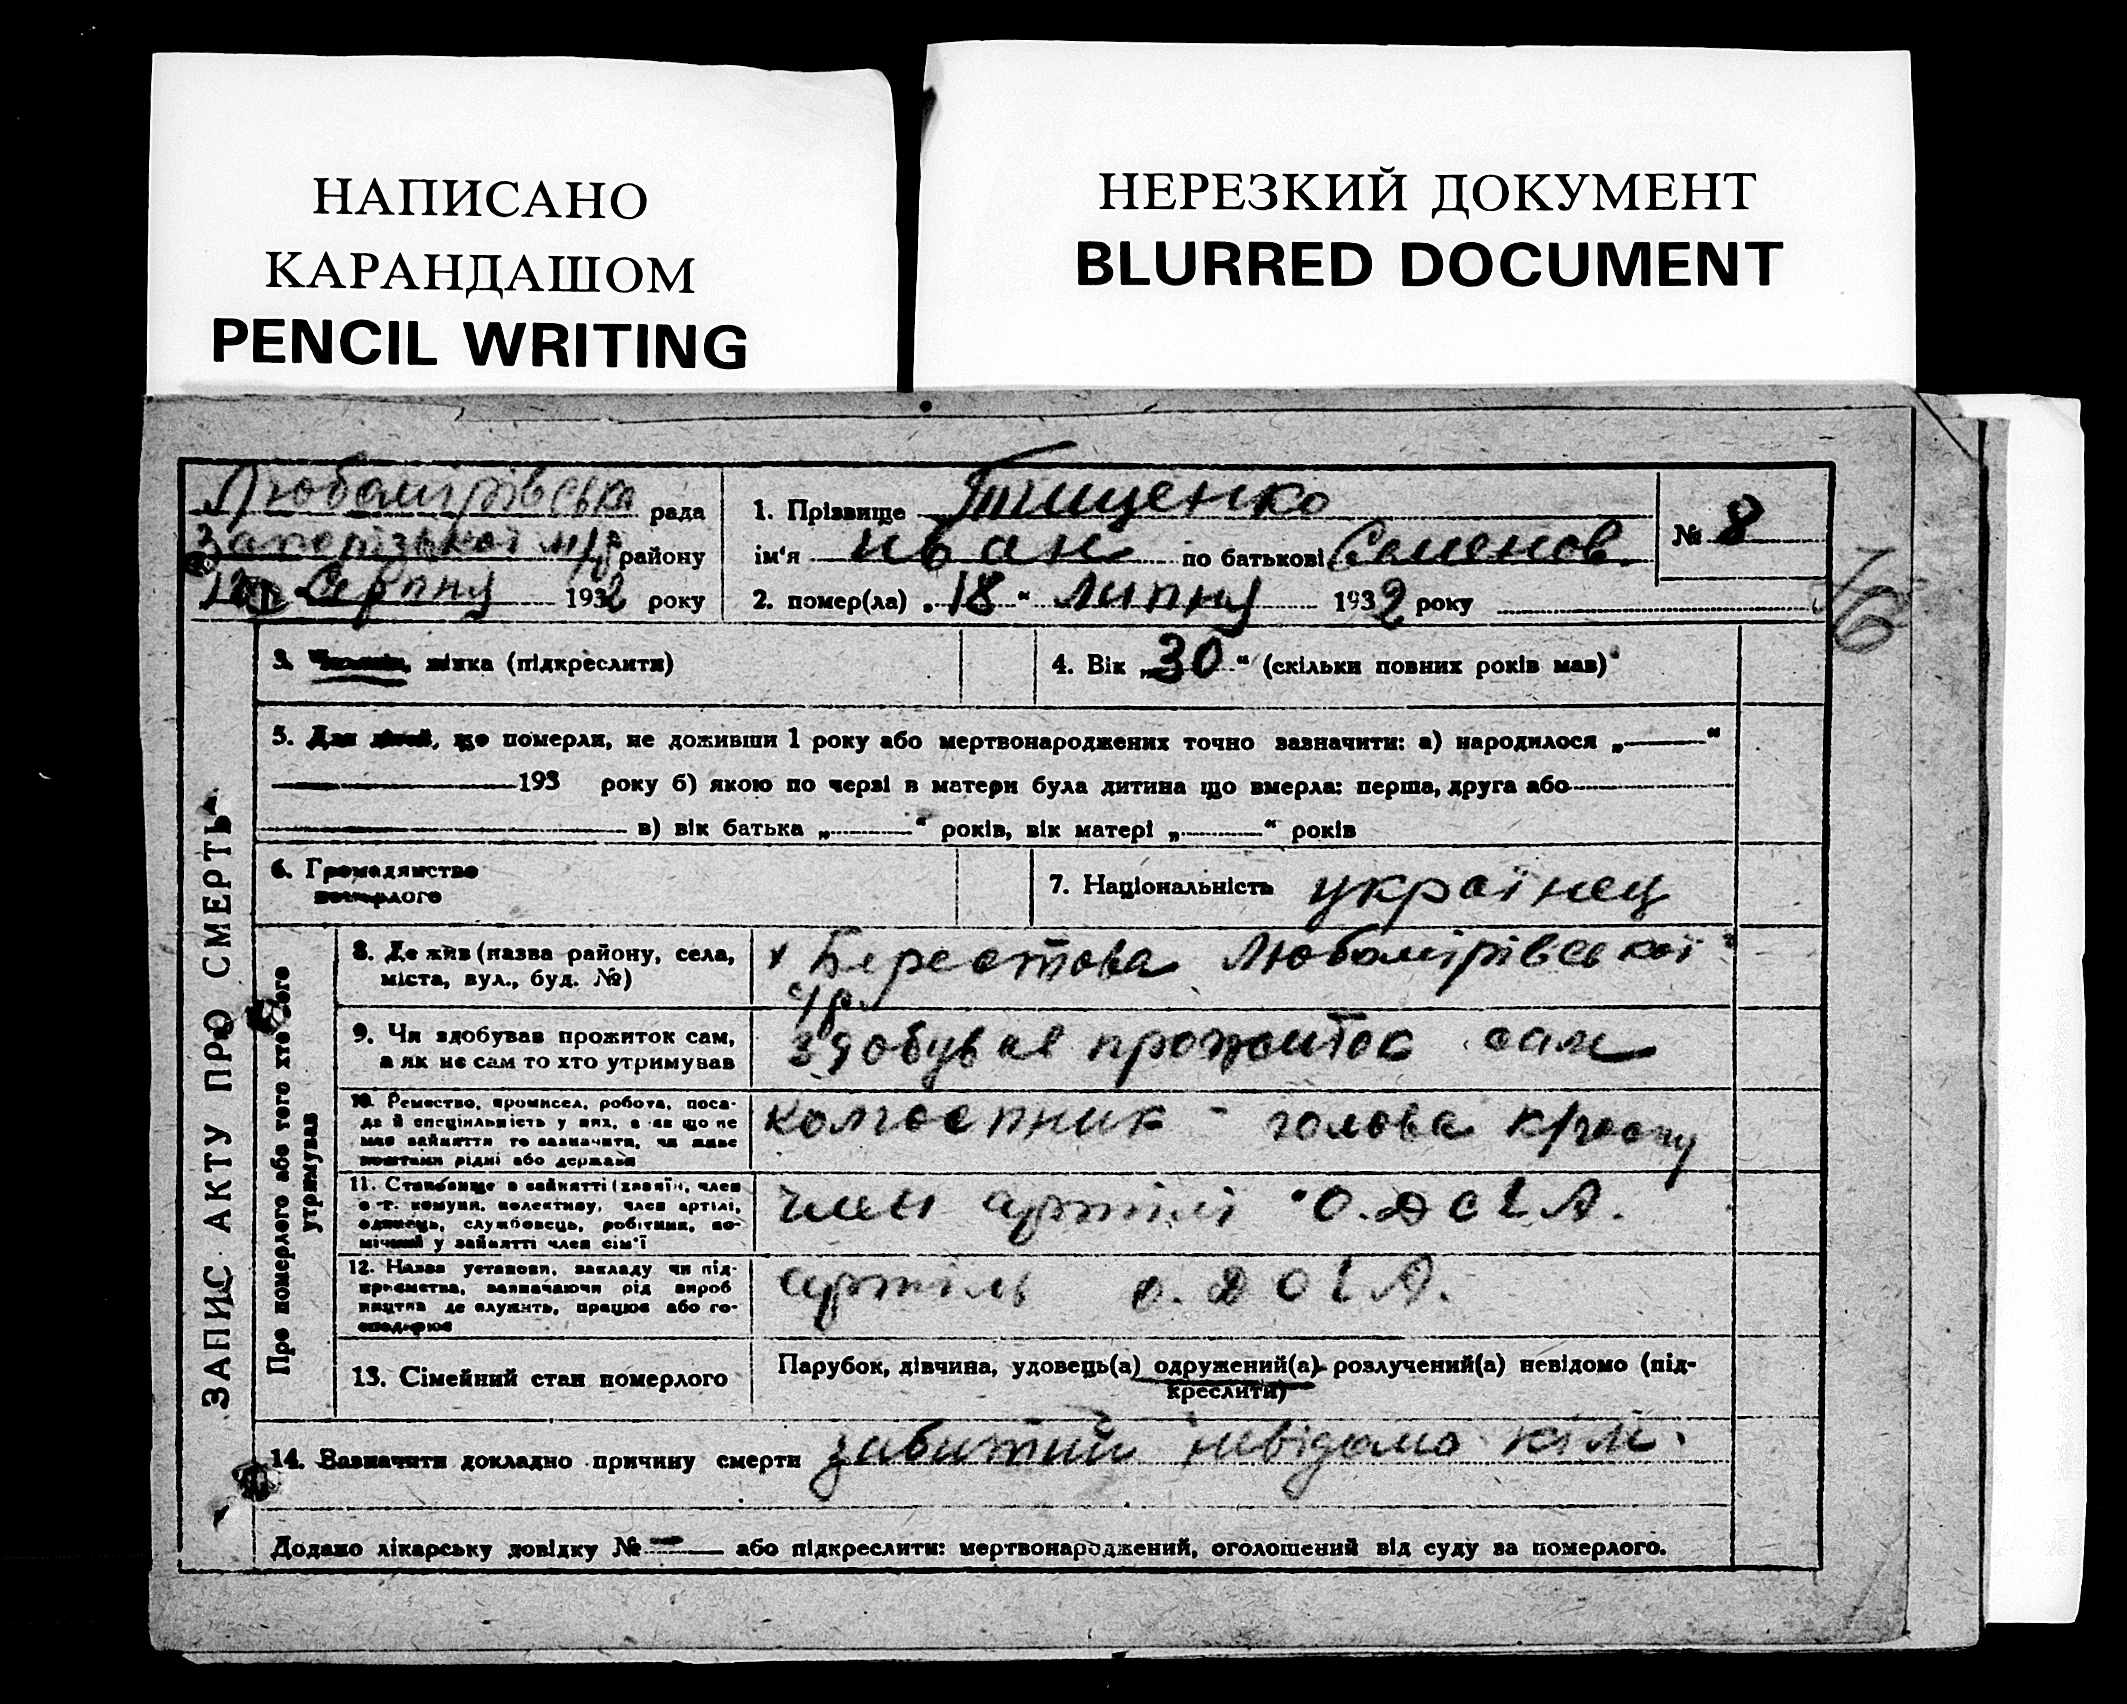 НАПИСАНО
КАРАНДАШОМ
PENCIL WRITING
НЕРЕЗКИЙ ДОКУМЕНТ
BLURRED DOCUMENT
Любомірівська рада
Запорізької м/р району
Серпну 1932 року
1. Прізвище Тищенко
ім'я Иван по батькові Семенов.
№ 8
2. помер(ла) „18“ Липну 1932 року
76
ЗАПИС АКТУ ПРО СМЕРТЬ
3. Чоловік, жінка (підкреслити)
4. Вік „30“ (скільки повних років мав)
5. Для дітей, що померли, не доживши 1 року або мертвонароджених точно зазначити: а) народилося „——“
193 року б) якою по черзі в матери була дитина що вмерла: перша, друга або
в) вік батька „——“ років, вік матері „——“ років
6. Громадянство
померлого
7. Національність українец
Про померлого або того хто його
утримував
8. Де жив (назва району, села,
міста, вул., буд. №)
х Берестова Любомірівської
с/р.
9. Чи здобував прожиток сам,
а як не сам то хто утримував
здобував прожиток сам
10. Ремество, промисел, робота, поса-
да й спеціяльність у них, а як що не
мав зайняття то зазначити, чи живе
коштами рідні або держави
колгоспник - голова к/госпу
11. Становище в зайнятті (хазяїн, член
с-г. комуни, колективу, член артілі,
одинець, службовець, робітник, по-
мічний у зайнятті член сім'ї
член артілі
12. Назва установи, закладу чи під-
приємства, зазначаючи рід вироб
ництва де служить, працює або го-
сподарює
артіль
13. Сімейний стан померлого
Парубок, дівчина, удовець(а) одружений(а) розлучений(а) невідомо (під-
креслити)
14. Зазначити докладно причину смерти забитий невідомо кім.
Додано лікарську довідку № — або підкреслити: мертвонароджений, оголошений від суду за померлого.